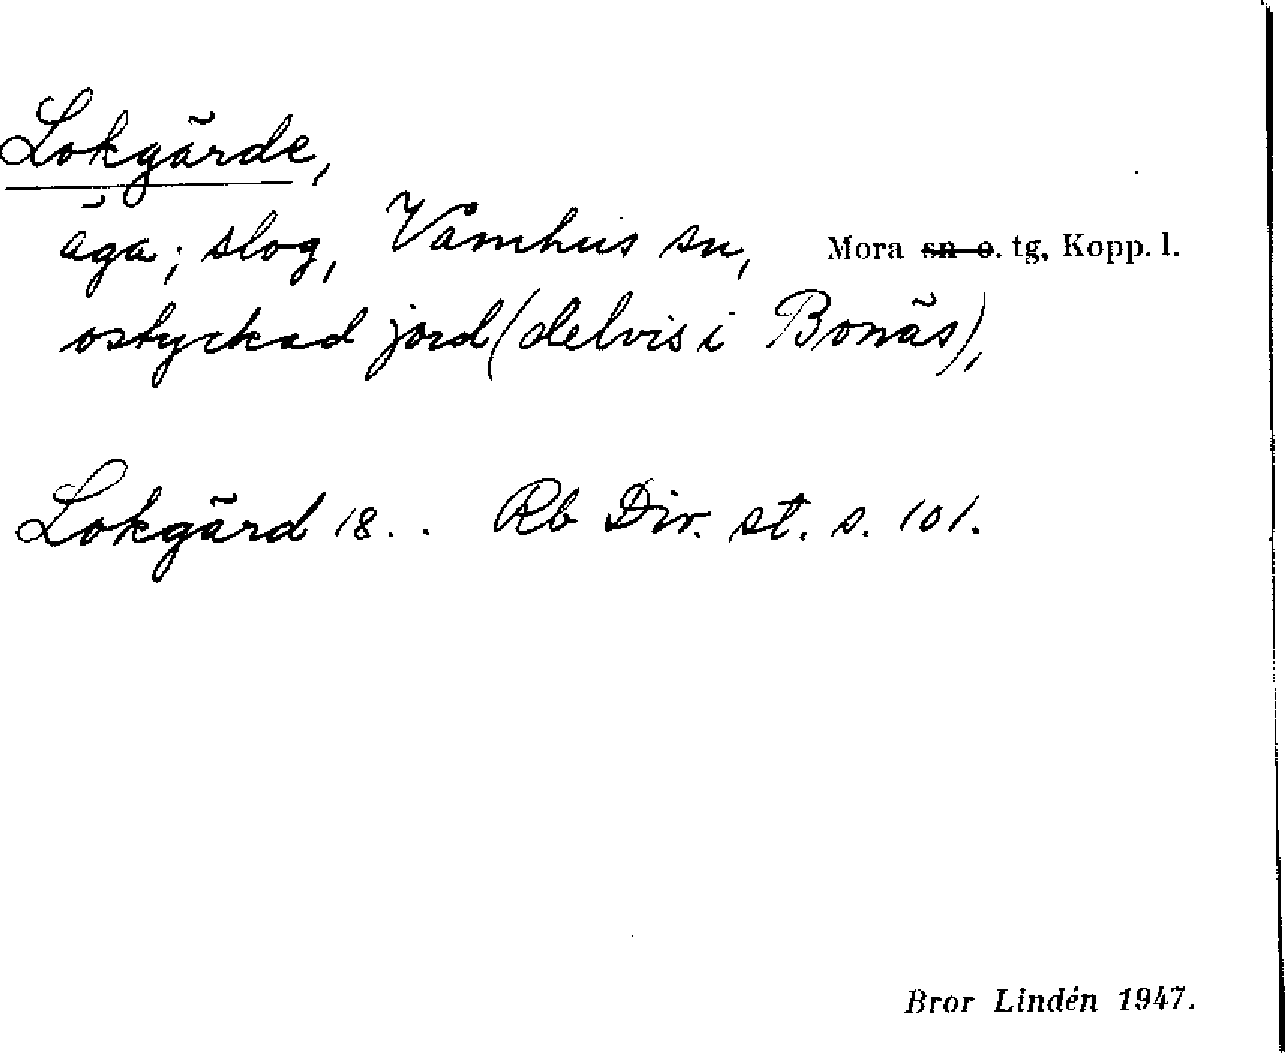 Lokgärde,
äga; slog, Våmhus sn, Mora sn o. tg, Kopp. l.
ostyckad jord (delvis i Bonäs),
Lokgärd 18.. Rb Div. st. s. 101.
Bror Lindén 1947.